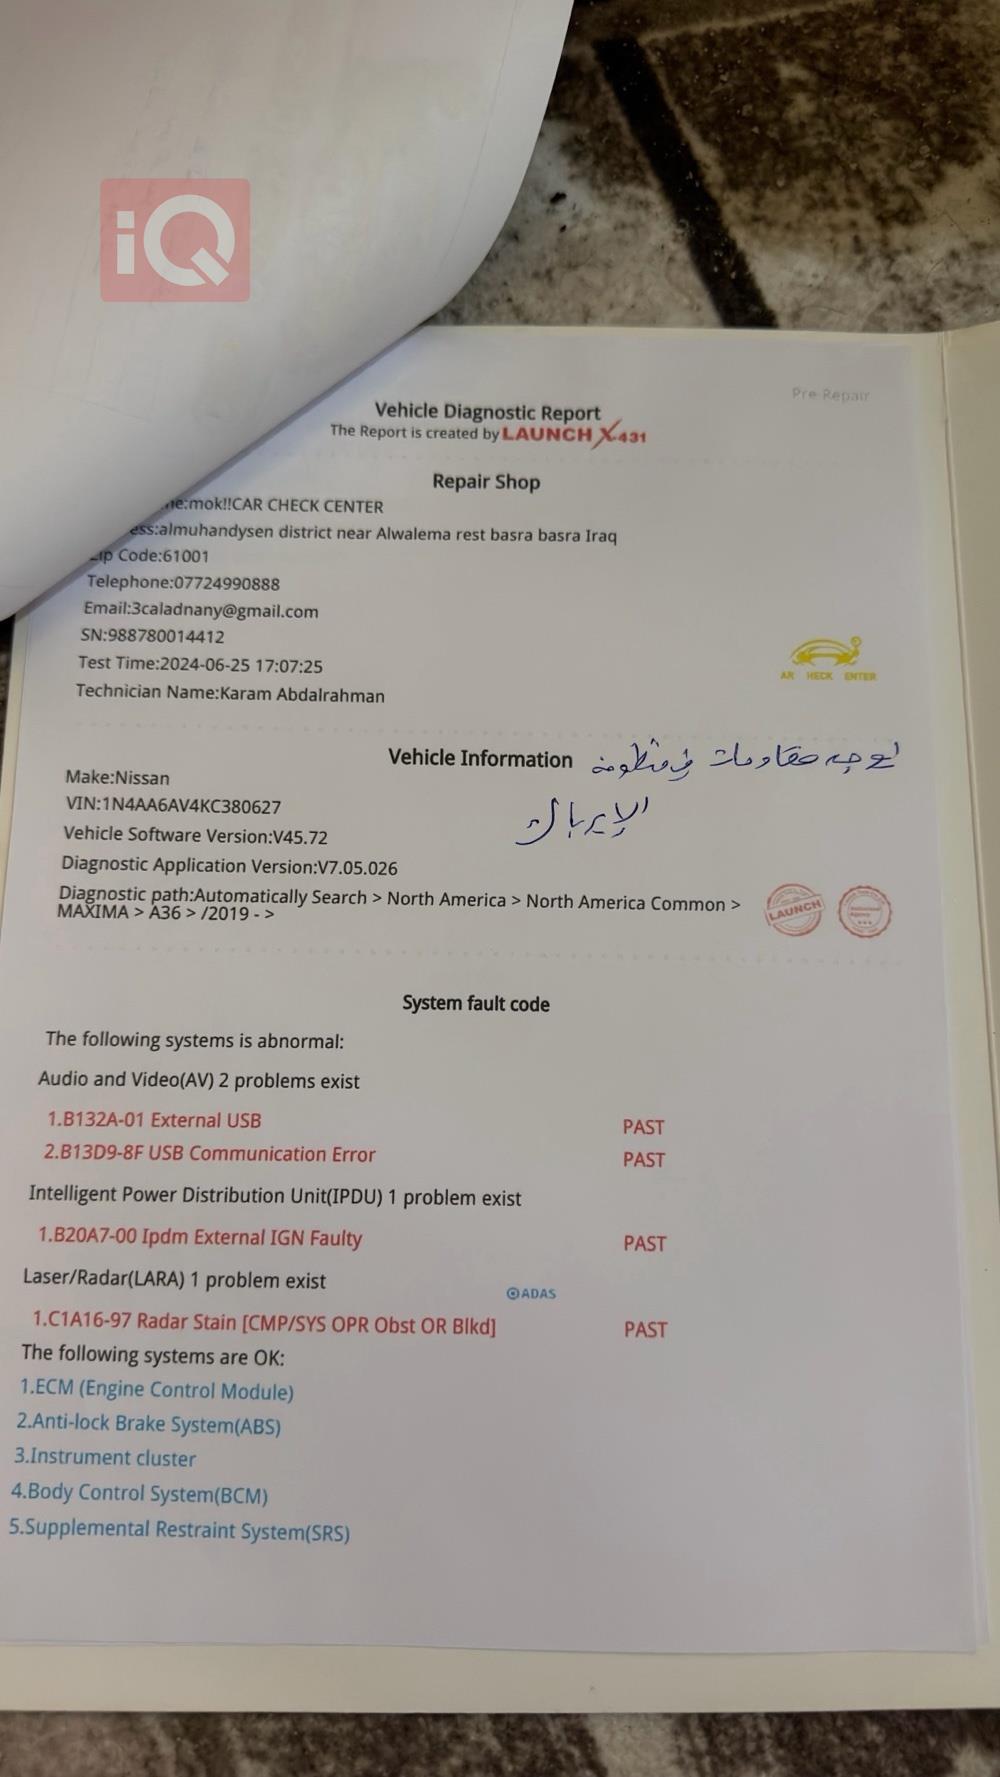 iQ
Pre-Repair
Vehicle Diagnostic Report
The Report is created by LAUNCH X-431
Repair Shop
me:mok!!CAR CHECK CENTER
ess:almuhandysen district near Alwalema rest basra basra Iraq
Zip Code:61001
Telephone:07724990888
Email:3caladnany@gmail.com
SN:988780014412
Test Time:2024-06-25 17:07:25
AR HECK ENTER
Technician Name:Karam Abdalrahman
Vehicle Information
توجد مقاومات في منظومة
الايرباك
Make:Nissan
VIN:1N4AA6AV4KC380627
Vehicle Software Version:V45.72
Diagnostic Application Version:V7.05.026
Diagnostic path:Automatically Search > North America > North America Common >
MAXIMA > A36 > /2019 - >
LAUNCH
System fault code
The following systems is abnormal:
Audio and Video(AV) 2 problems exist
1.B132A-01 External USB PAST
2.B13D9-8F USB Communication Error PAST
Intelligent Power Distribution Unit(IPDU) 1 problem exist
1.B20A7-00 Ipdm External IGN Faulty PAST
Laser/Radar(LARA) 1 problem exist
ADAS
1.C1A16-97 Radar Stain [CMP/SYS OPR Obst OR Blkd] PAST
The following systems are OK:
1.ECM (Engine Control Module)
2.Anti-lock Brake System(ABS)
3.Instrument cluster
4.Body Control System(BCM)
5.Supplemental Restraint System(SRS)